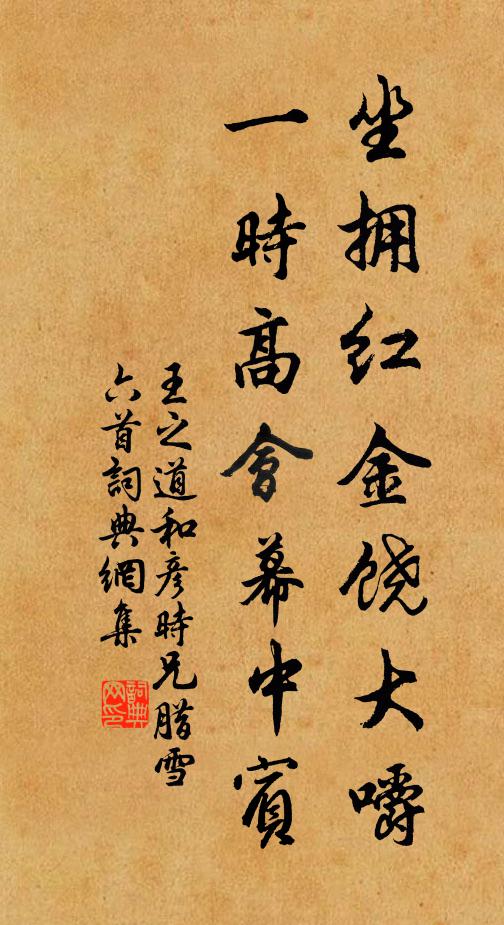 坐拥红金饶大嚼
一時高會幕中賓
王之道和彦時兄腊雪
六首詞典網集
詞典网印